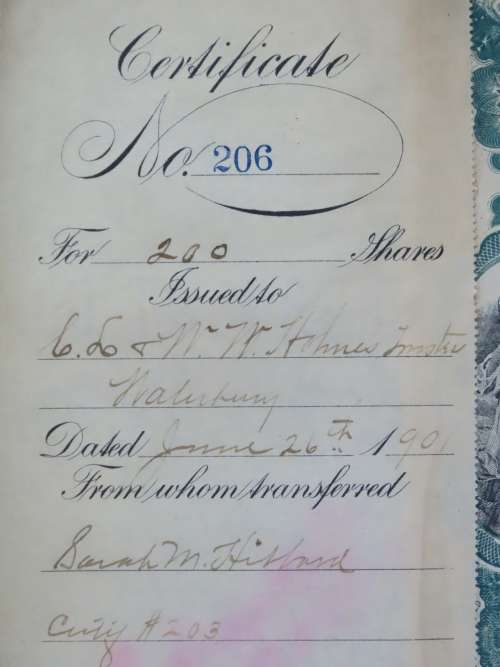 Certificate
No. 206
For 200 Shares
Issued to
C. L & W. W. Holmes Trustee
Waterbury
Dated June 26th 1901
From whom transferred
Sarah M.
# 203